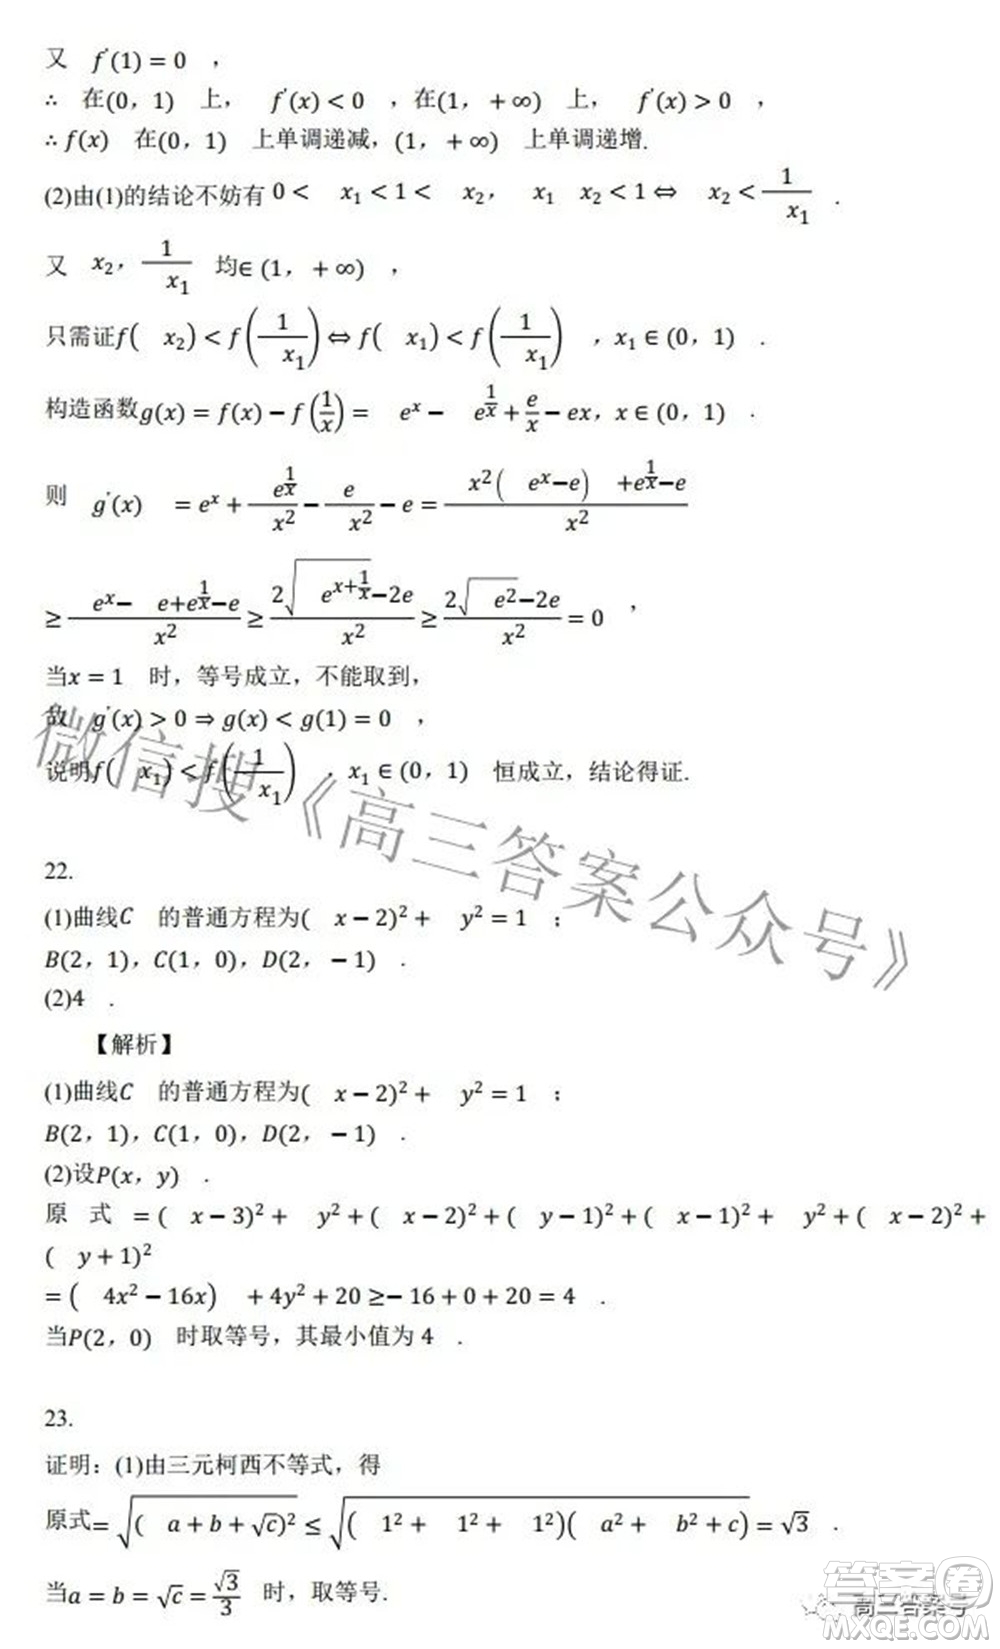 又 f'(1)=0 ，
∴ 在(0，1) 上， f'(x)<0 ，在(1，+∞) 上， f'(x)>0 ，
∴f(x) 在(0，1) 上单调递减，(1，+∞) 上单调递增.
(2)由(1)的结论不妨有 0< x₁<1< x₂， x₁ x₂<1⇔ x₂<1/x₁ .
又 x₂，1/x₁ 均∈(1，+∞) ，
只需证f( x₂)<f(1/x₁)⇔f( x₁)<f(1/x₁) ，x₁∈(0，1) .
构造函数g(x)=f(x)−f(1/x)= e^x− e^(1/x)+e/x−ex，x∈(0，1) .
则 g'(x) =e^x+e^(1/x)/x²−e/x²−e=(x²( e^x−e) +e^(1/x)−e)/x²
≥(e^x− e+e^(1/x)−e)/x²≥(2√(e^(x+1/x))−2e)/x²≥(2√(e²)−2e)/x²=0 ，
当x=1 时，等号成立，不能取到，
故 g'(x)>0⇒g(x)<g(1)=0 ，
说明f( x₁)<f(1/x₁) ，x₁∈(0，1) 恒成立，结论得证.
微信搜《高三答案公众号》
22.
(1)曲线C 的普通方程为( x−2)²+ y²=1 ：
B(2，1)，C(1，0)，D(2，−1) .
(2)4 .
【解析】
(1)曲线C 的普通方程为( x−2)²+ y²=1 ：
B(2，1)，C(1，0)，D(2，−1) .
(2)设P(x，y) .
原 式 =( x−3)²+ y²+( x−2)²+( y−1)²+( x−1)²+ y²+( x−2)²+
( y+1)²
=( 4x²−16x) +4y²+20≥−16+0+20=4 .
当P(2，0) 时取等号，其最小值为 4 .
23.
证明：(1)由三元柯西不等式，得
原式=√(( a+b+√c)²)≤√(( 1²+ 1²+ 1²)( a²+ b²+c))=√3 .
当a=b=√c=√3/3 时，取等号.
答案圈
高三答案号
MXQE.COM